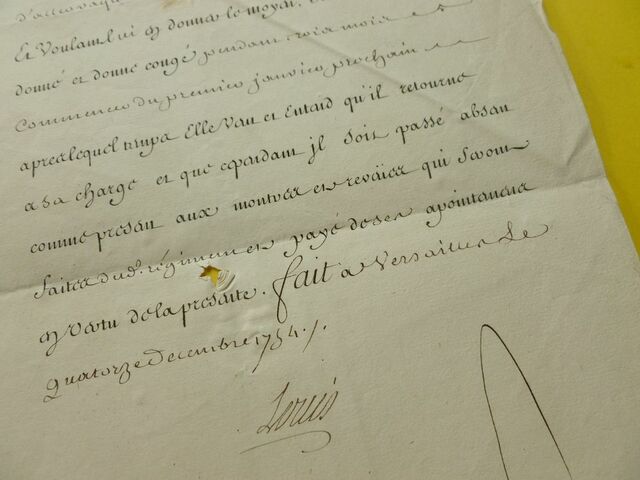 d'accavaque
Et Voulant lui en donner le moyen.
donné et donne congé pendant trois mois
Commencer du premier janvier prochain
apres lequel temps Elle Veut et Entend qu'il retourne
a sa charge et que cependant jl soit passé absan
comme presan aux montres et reveües qui seront
faites dud. régiment et payé de ses apointemens
en vertu de la presente. fait a Versailles Le
Quatorze decembre 1754./.
Louis